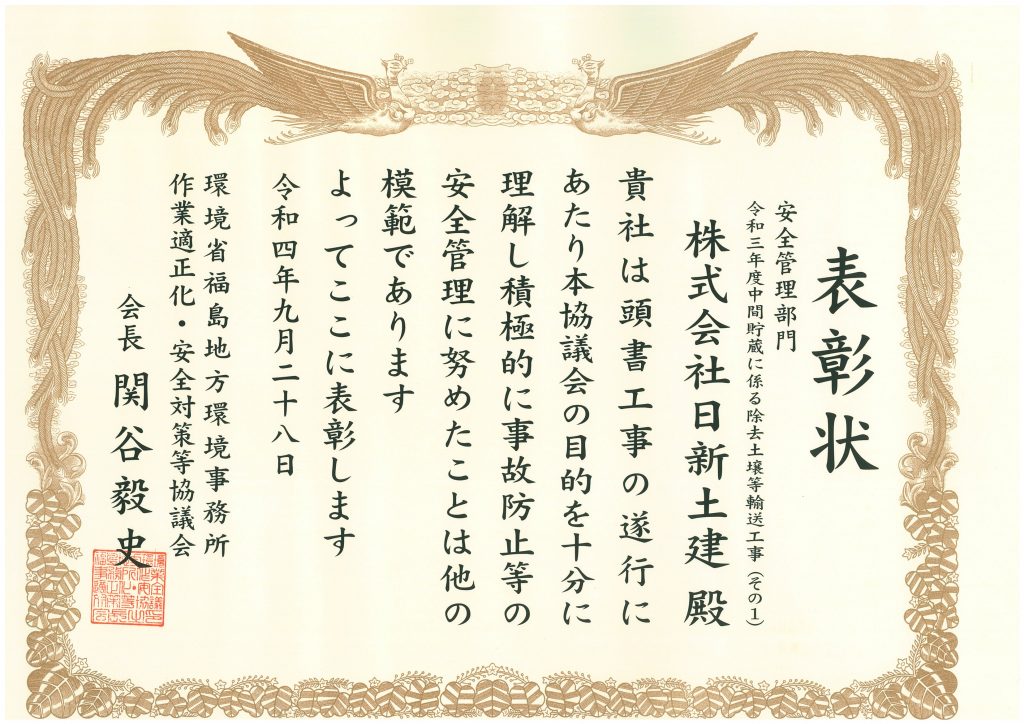 表彰状
安全管理部門
令和三年度中間貯蔵に係る除去土壌等輸送工事（その１）
株式会社日新土建 殿
貴社は頭書工事の遂行に
あたり本協議会の目的を十分に
理解し積極的に事故防止等の
安全管理に努めたことは他の
模範であります
よってここに表彰します
令和四年九月二十八日
環境省福島地方環境事務所
作業適正化・安全対策等協議会
会長 関谷毅史